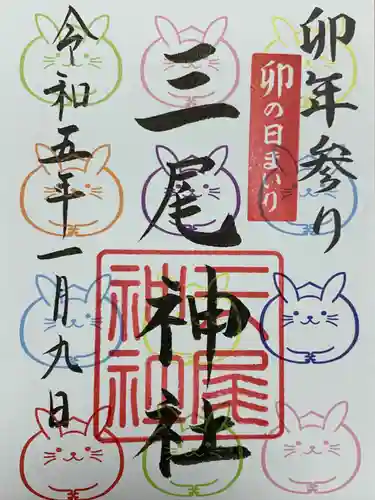 卯年参り
卯の日まいり
三尾神社
三尾神社
令和五年一月九日